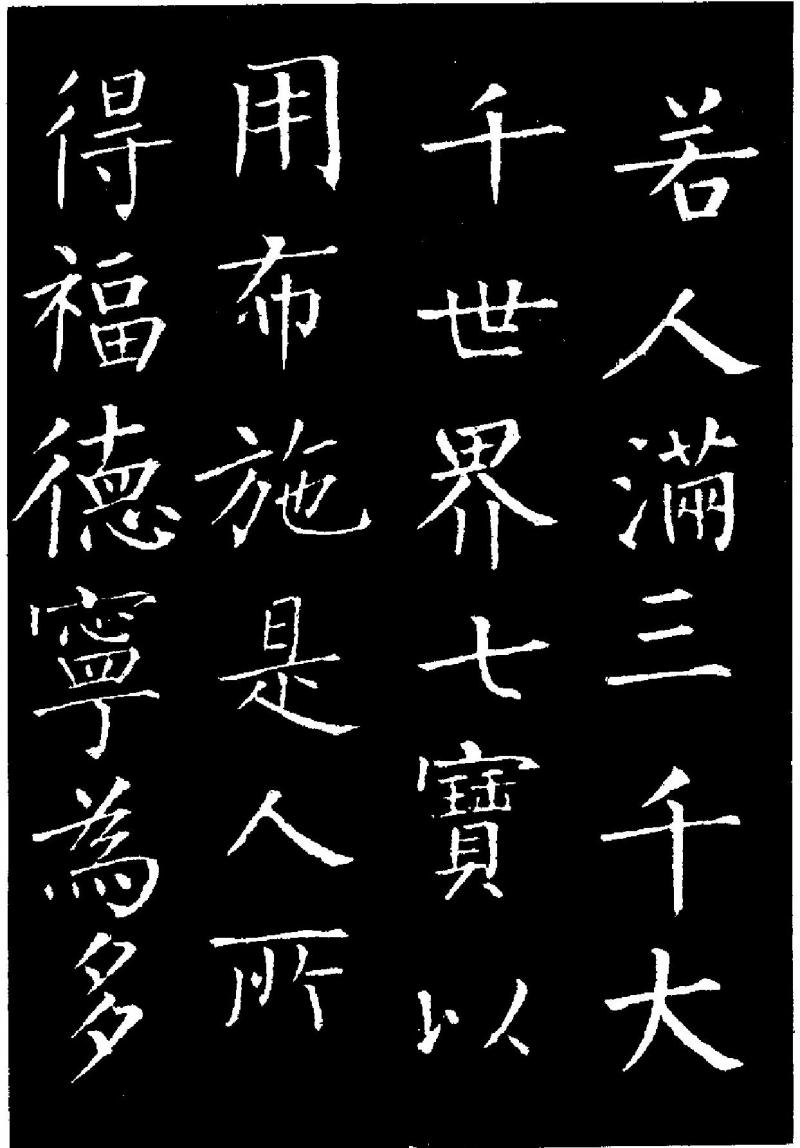 若人滿三千大
千世界七寶以
用布施是人所
得福德寧為多